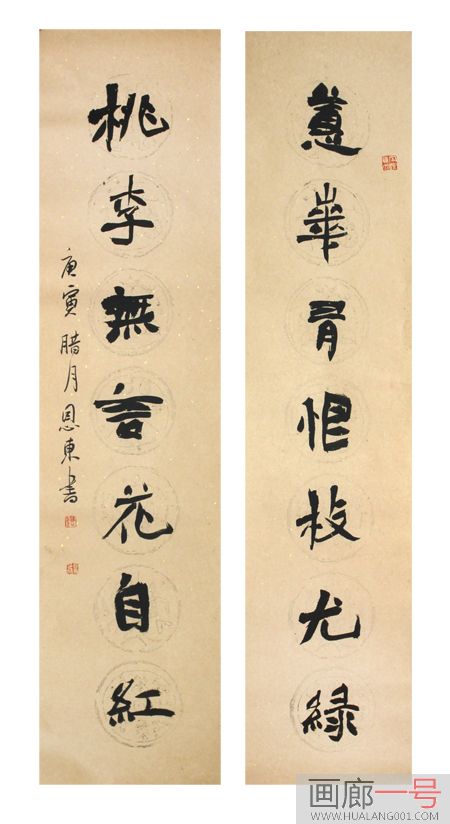 蕙華有恨枝尤綠
桃李無言花自紅
庚寅腊月恩東書
画廊一号
WWW.HUALANG001.COM